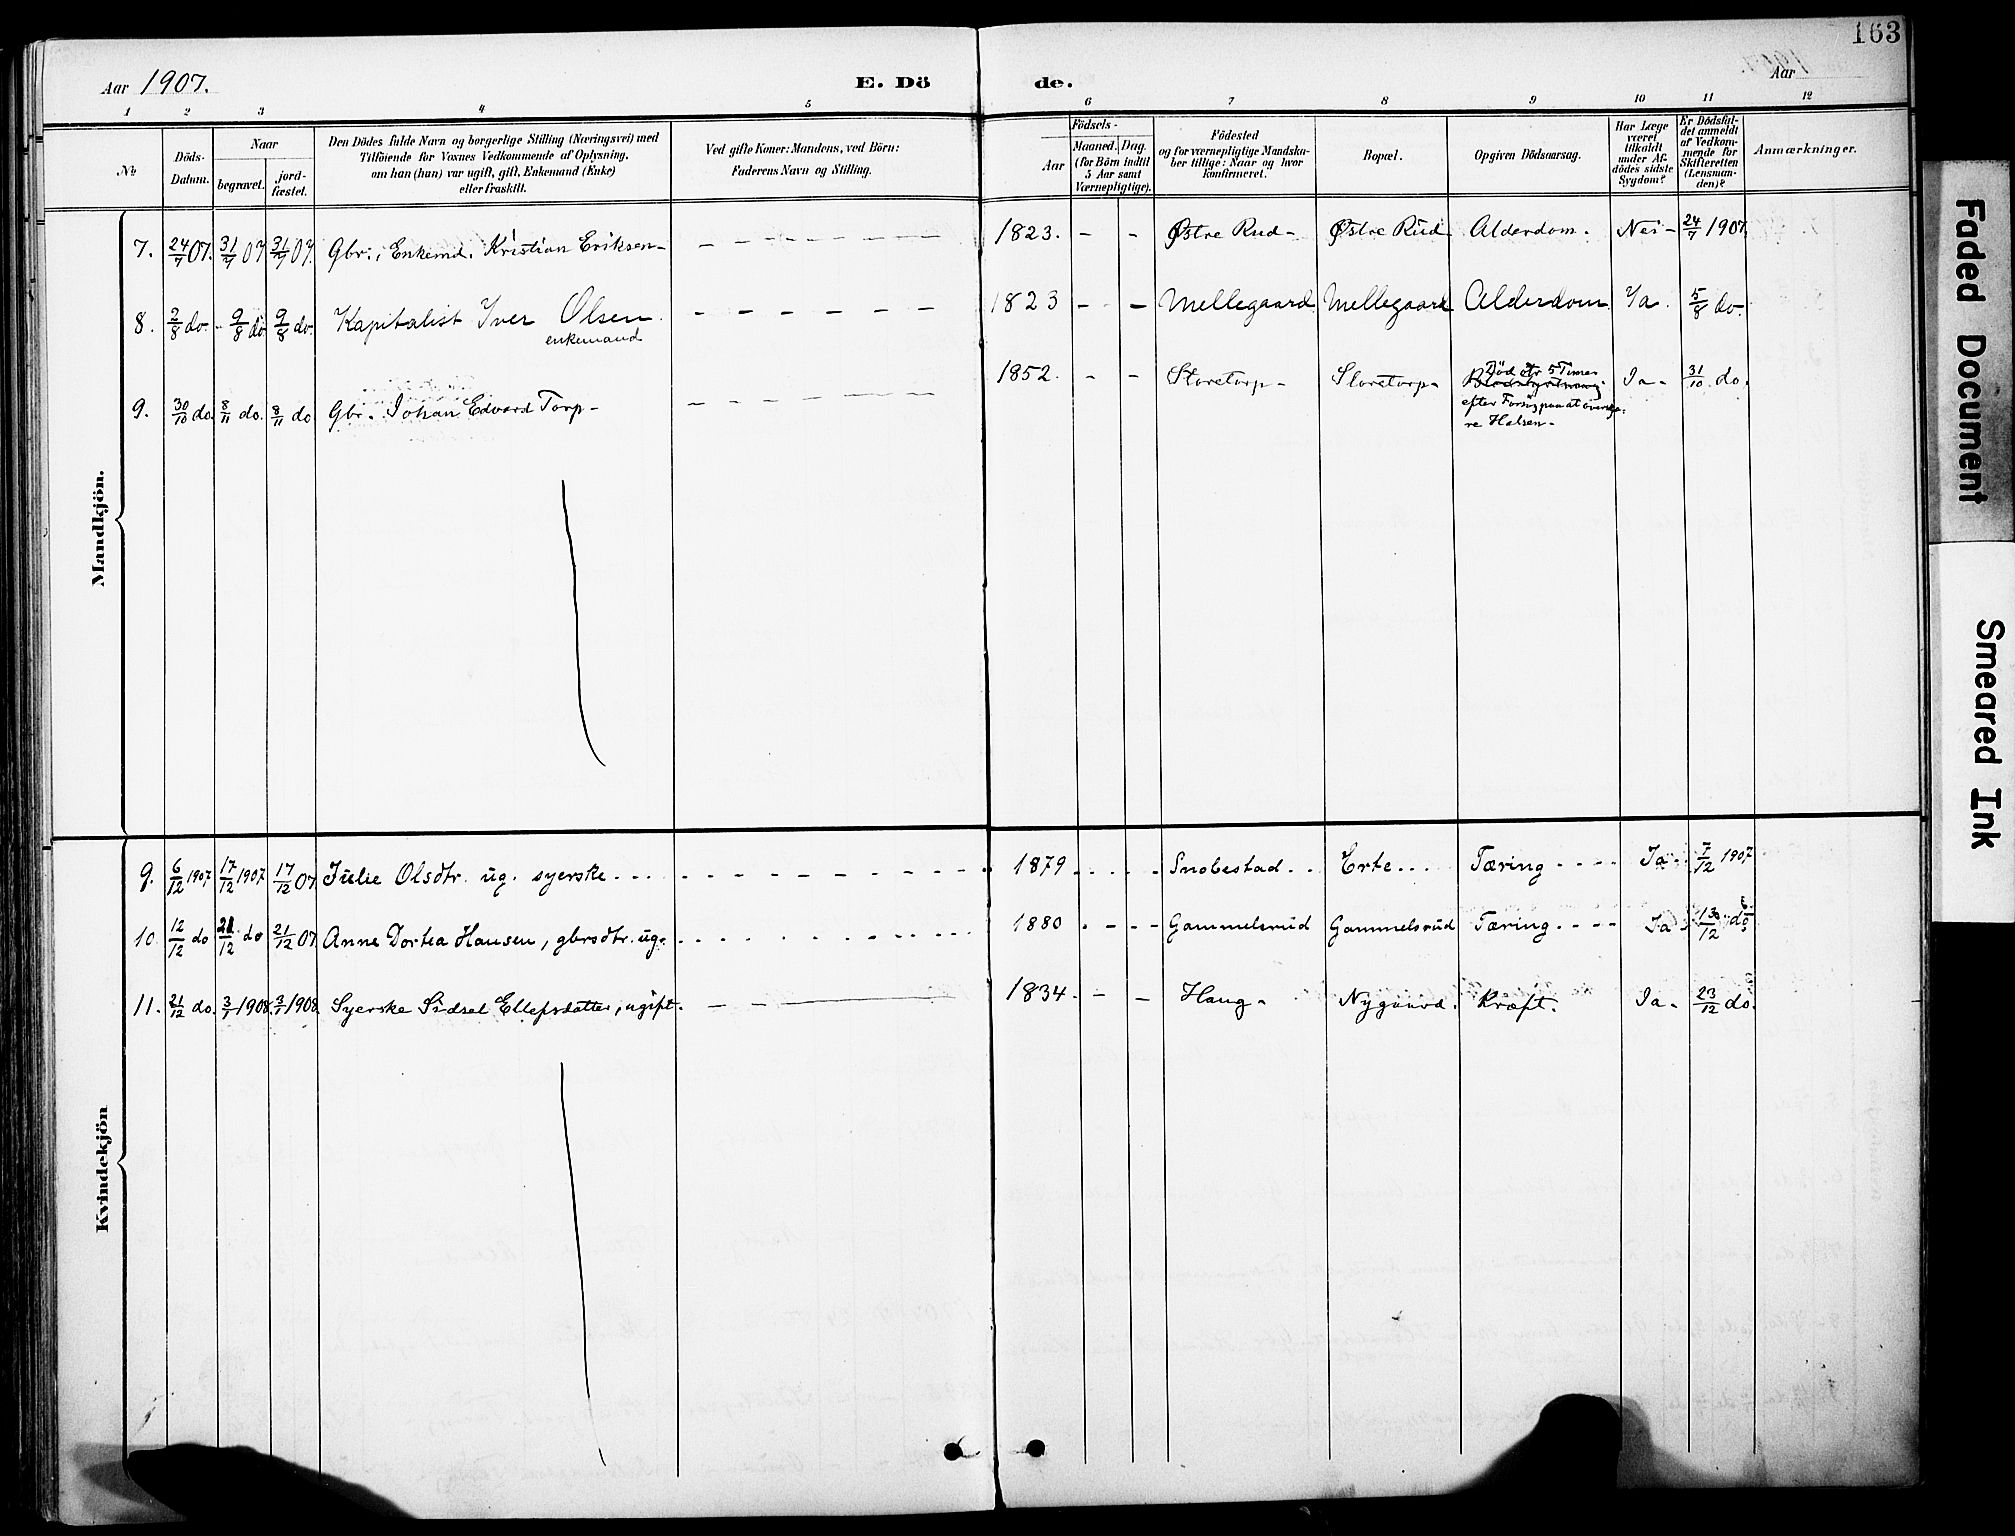 163
Aar 1907.
E. Döde.
Aar
1 2 3 4 5 6 7 8 9 10 11 12
No
Döds-Datum.
Naar
begravet.
jord-fæstet.
Den Dödes fulde Navn og borgerlige Stilling (Næringsvei) med
Tilföiende for Voxnes Vedkommende af Oplysning,
om han (hun) var ugift, gift, Enkemand (Enke)
eller fraskilt.
Ved gifte Koner: Mandens, ved Börn:
Faderens Navn og Stilling.
Födsels-
Aar
Maaned. Dag.
(for Börn indtil
5 Aar samt
Værnepligtige).
Födested
og for værnepligtige Mandska-
ber tillige: Naar og hvor
konfirmeret.
Bopæl.
Opgiven Dödsaarsag.
Har Læge
været
tilkaldt
under Af-
dödes sidste
Sygdom?
Er Dödsfal-
det anmeldt
af Vedkom-
mende for
Skifteretten
(Lensman-
den)?
Anmærkninger.
Mandkjön.
7. 24/7 07. 31/7 07 31/7 07. Gbr., Enkemd. Kristian Eriksen - 1823. - - Østre Rud - Østre Rud Alderdom. Nei - 24/7 1907.
8. 2/8 do - 9/8 do 9/8 do. Kapitalist Iver Olsen 1823 - - Mellegaard Mellegaard Alderdom Ja. 5/8 do.
enkemand
9. 30/10 do. 8/11 do. 8/11 do Gbr. Johan Edvard Torp - 1852. - - Storetorp - Storetorp - Död 5 Timer Ja - 31/10 do.
efter Forsøg paa at overskjæ-
re Halsen -
Kvindekjön
9. 6/12 1907 17/12 1907 17/12 07 Julie Olsdtr. ug. syerske 1879 Snobestad Erte Tæring Ja 7/12 1907
10. 12/12 do 21/12 do 21/12 07 Anne Dortea Hansen, gbrsdtr. ug. 1880 Gammelsrud Gammelsrud Tæring Ja 13/12 do
11. 21/12 do. 3/1 1908. 3/1 1908 Syerske Sidsel Ellefsdatter, ugift. 1834 - - Haug - Nygaard. Kræft. Ja - 23/12 do.
Faded Document
Smeared Ink